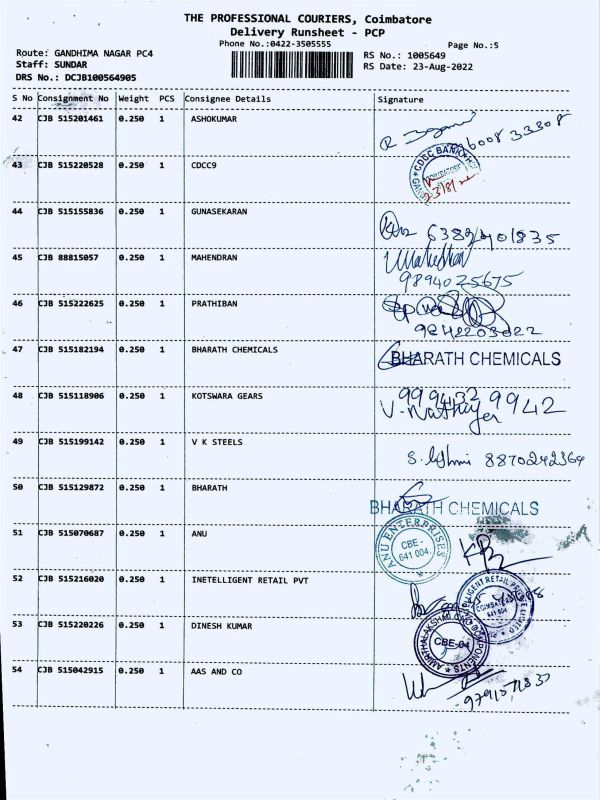 THE PROFESSIONAL COURIERS, Coimbatore
Delivery Runsheet - PCP
Phone No.:0422-3505555
Page No.:5
Route: GANDHIMA NAGAR PC4
RS No.: 1005649
Staff: SUNDAR
RS Date: 23-Aug-2022
DRS No.: DCJB100564905
S No Consignment No Weight PCS Consignee Details Signature
42 CJB 515201461 0.250 1 ASHOKUMAR
43 CJB 515220528 0.250 1 CDCC9
CDCC BANK
23/8/22
44 CJB 515155836 0.250 1 GUNASEKARAN
45 CJB 88815057 0.250 1 MAHENDRAN
9894025675
46 CJB 515222625 0.250 1 PRATHIBAN
47 CJB 515182194 0.250 1 BHARATH CHEMICALS BHARATH CHEMICALS
48 CJB 515118906 0.250 1 KOTSWARA GEARS
49 CJB 515199142 0.250 1 V K STEELS
8870242364
50 CJB 515129872 0.250 1 BHARATH BHARATH CHEMICALS
51 CJB 515070687 0.250 1 ANU
ANU ENTERPRISES
CBE -
641 004.
52 CJB 515216020 0.250 1 INETELLIGENT RETAIL PVT
53 CJB 515220226 0.250 1 DINESH KUMAR
CBE-04
54 CJB 515042915 0.250 1 AAS AND CO